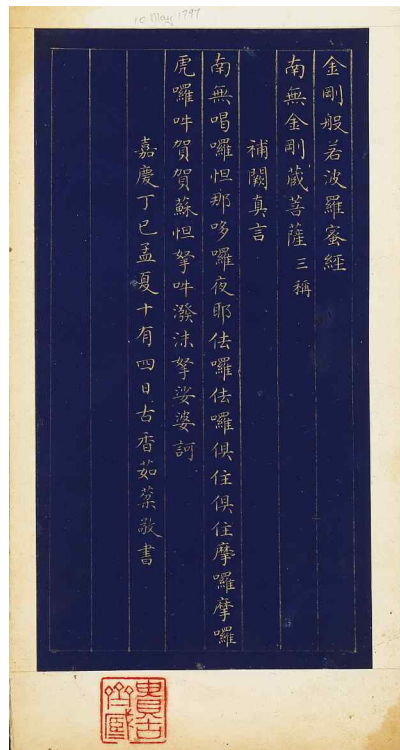 10 May 1797
金剛般若波羅蜜經
南無金剛藏菩薩 三稱
補闕真言
南無喝囉怛那哆囉夜耶佉囉佉囉俱住俱住摩囉摩囉
虎囉吽賀賀蘇怛拏吽潑沫拏娑婆訶
嘉慶丁巳孟夏十有四日古香茹棻敬書